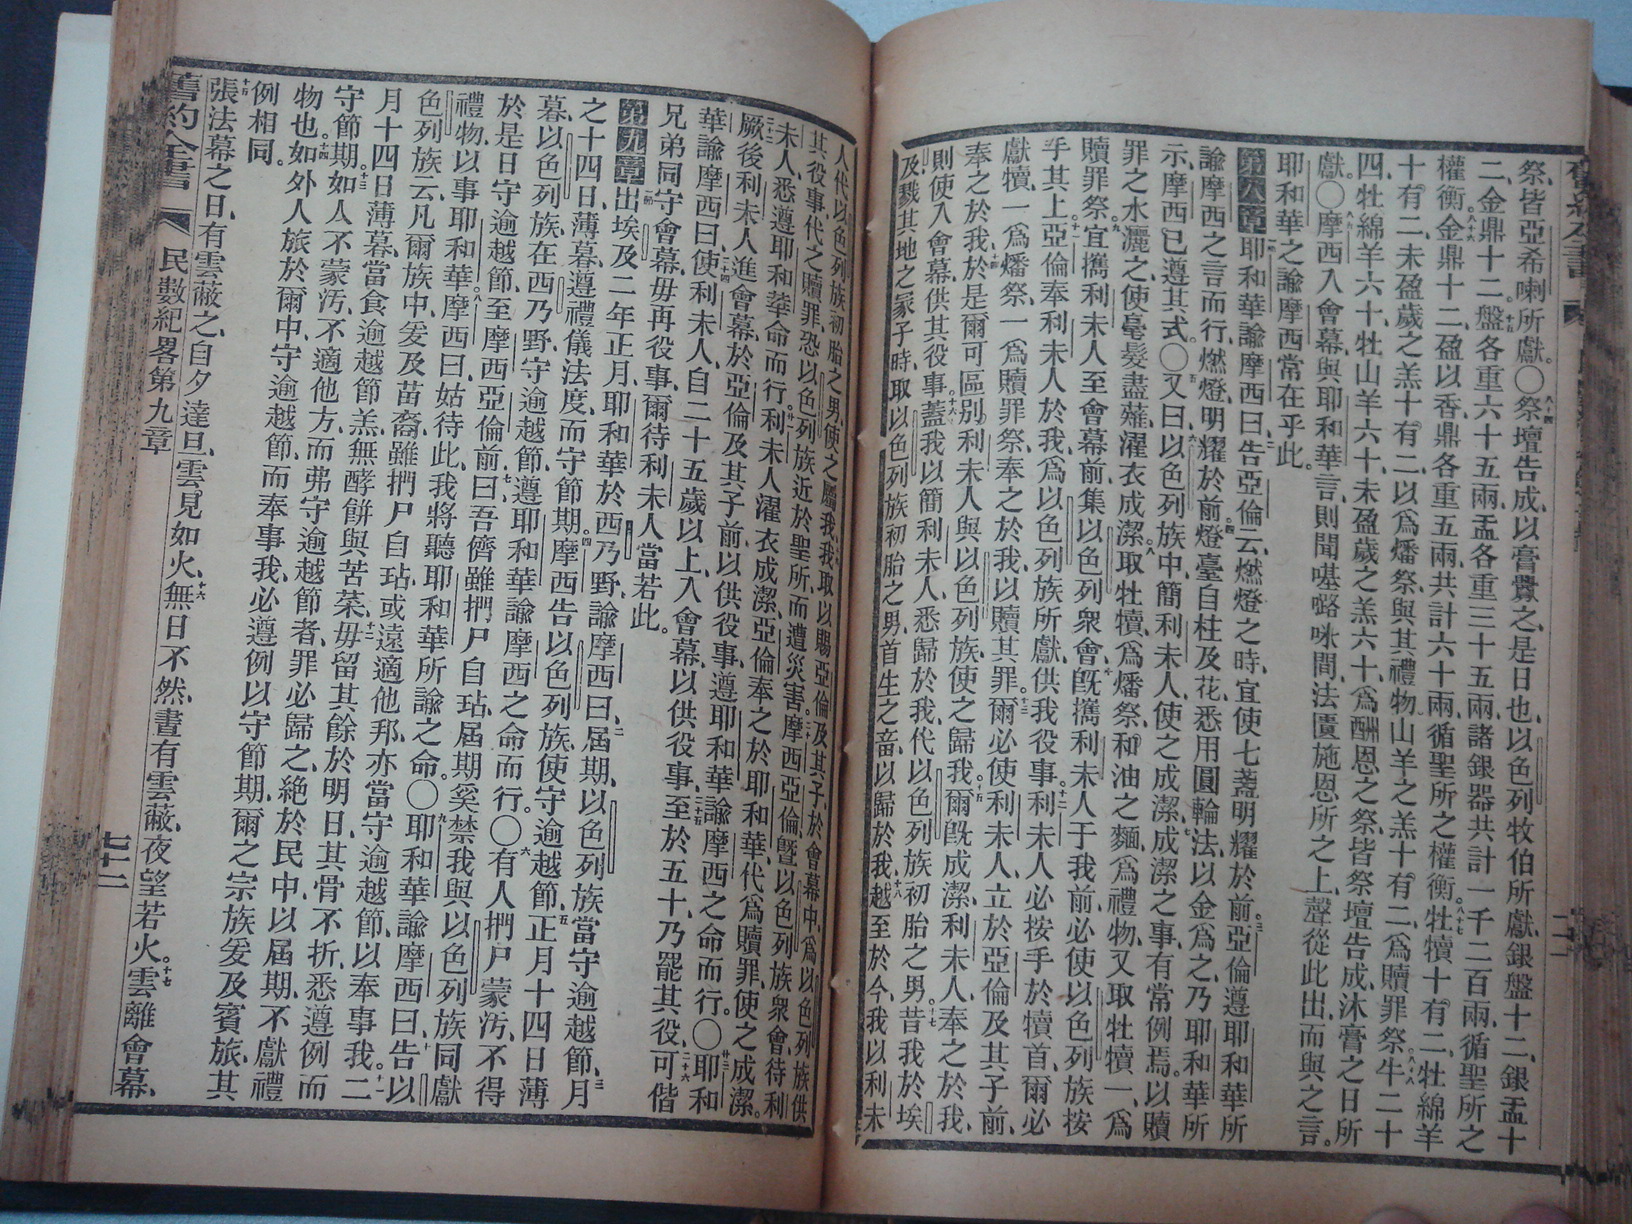 祭、皆亞希喇所獻。〇祭壇告成、以膏釁之、是日也、以色列牧伯所獻、銀盤十二、銀盂十
二、金鼎十二、盤各重六十五兩、盂各重三十五兩、諸銀器共計一千二百兩、循聖所之
權衡、金鼎十二、盈以香、鼎各重五兩、共計六十兩、循聖所之權衡。牡犢十有二、牡綿羊
十有二、未盈歲之羔十有二、以爲燔祭、與其禮物、山羊之羔十有二、爲贖罪祭、牛二十
四、牡綿羊六十、牡山羊六十、未盈歲之羔六十、爲酬恩之祭、皆祭壇告成、沐膏之日所
獻。〇摩西入會幕、與耶和華言、則聞𠼻𠼻咪間、法匱施恩所之上、聲從此出、而與之言。
耶和華之諭摩西、常在乎此。
第八章 耶和華諭摩西曰、告亞倫云、燃燈之時、宜使七盞明耀於前。亞倫遵耶和華所
諭摩西之言而行、燃燈、明耀於前、燈臺自柱及花、悉用圓輪法、以金爲之、乃耶和華所
示、摩西已遵其式。〇又曰、以色列族中、簡利未人、使之成潔、成潔之事、有常例焉。以贖
罪之水灑之、使毫髮盡薙、濯衣成潔、取牡犢爲燔祭、和油之麵爲禮物、又取牡犢一、爲
贖罪祭。宜攜利未人至會幕前、集以色列衆會、旣攜利未人于我前、必使以色列族按
手其上。亞倫奉利未人於我、爲以色列族所獻、供我役事。利未人必按手於犢首、爾必
獻犢、一爲燔祭、一爲贖罪祭、奉之於我、以贖其罪。爾必使利未人立於亞倫及其子前、
奉之於我、於是爾可區別利未人與以色列族、使之歸我。爾旣成潔利未人、奉之於我、
則使入會幕、供其役事。蓋我以簡利未人、悉歸於我、代以色列族初胎之男。昔我於埃
及戮其地之冢子時、取以色列族初胎之男、首生之畜、以歸於我、越至於今、我以利未
人代以色列族初胎之男、使之屬我、我取以賜亞倫及其子、於會幕中、爲以色列族供
其役事、代之贖罪、恐以色列族近於聖所、而遭災害。摩西亞倫曁以色列族衆會、待利
未人、悉遵耶和華命而行。利未人濯衣成潔、亞倫奉之於耶和華、代爲贖罪、使之成潔。
厥後利未人進會幕、於亞倫及其子前、以供役事、遵耶和華諭摩西之命而行。〇耶和
華諭摩西曰、使利未人、自二十五歲以上、入會幕、以供役事、至於五十、乃罷其役、可偕
兄弟同守會幕、毋再役事、爾待利未人當若此。
第九章 出埃及二年正月、耶和華於西乃野、諭摩西曰、屆期、以色列族當守逾越節、月
之十四日薄暮、遵禮儀法度、而守節期。摩西告以色列族、使守逾越節、正月十四日薄
暮、以色列族在西乃野、守逾越節、遵耶和華諭摩西之命而行。〇有人捫尸蒙汚、不得
於是日守逾越節、至摩西亞倫前曰、吾儕雖捫尸自玷、屆期奚禁我與以色列族同獻
禮物、以事耶和華。摩西曰、姑待此、我將聽耶和華所諭之命。〇耶和華諭摩西曰、告以
色列族云、凡爾族中、爰及苗裔、雖捫尸自玷、或遠適他邦、亦當守逾越節、以奉事我。二
月十四日薄暮、當食逾越節羔、無酵餅與苦菜、毋留其餘於明日、其骨不折、悉遵例而
守節期。如人不蒙汚、不適他方、而弗守逾越節者、罪必歸之、絶於民中、以屆期不獻禮
物也。如外人旅於爾中、守逾越節、而奉事我、必遵例以守節期、爾之宗族爰及賓旅、其
例相同。
張法幕之日、有雲蔽之、自夕達旦、雲見如火、無日不然、晝有雲蔽、夜望若火。雲離會幕、
舊約全書 民數紀畧第九章 七十二